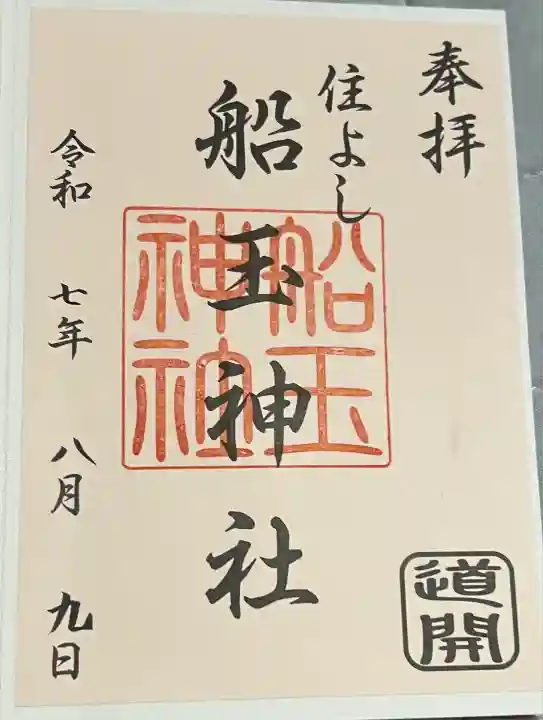 奉拝
住よし
船玉神社
船玉
神社
令和 七年 八月 九日
道開